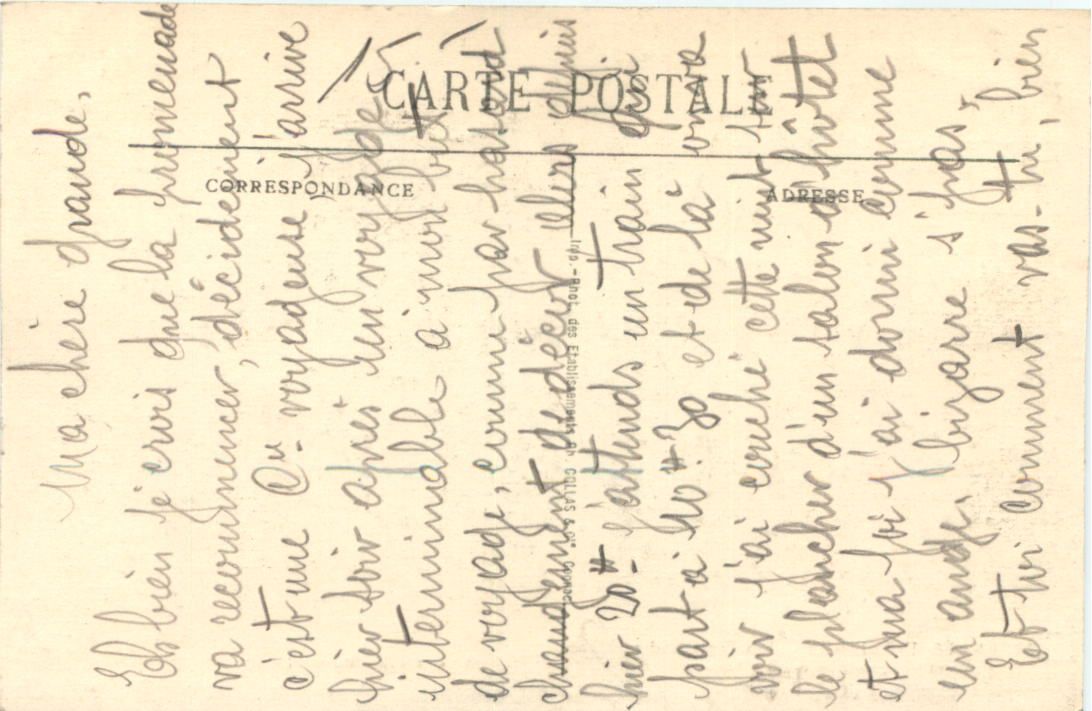 CARTE POSTALE
CORRESPONDANCE
ADRESSE
Imp.-Phot. des Etablissements Ch. COLLAS & Cie Cognac
Ma chère grande,
Eh bien je crois que la promenade
va recommencer, décidément
c'est une Cie voyageuse J'arrive
hier soir après un voyage
interminable à mon bu
de voyage, comme par hasard
changement de décor depuis
hier 20H J'attends un train qui
part à 10H30 et de là on va
voir J'ai couché cette nuit sur
le plancher d'un salon d'hôtel
et ma foi j'ai dormi comme
un ange. bizarre s'pas,
Et toi comment vas-tu, bien